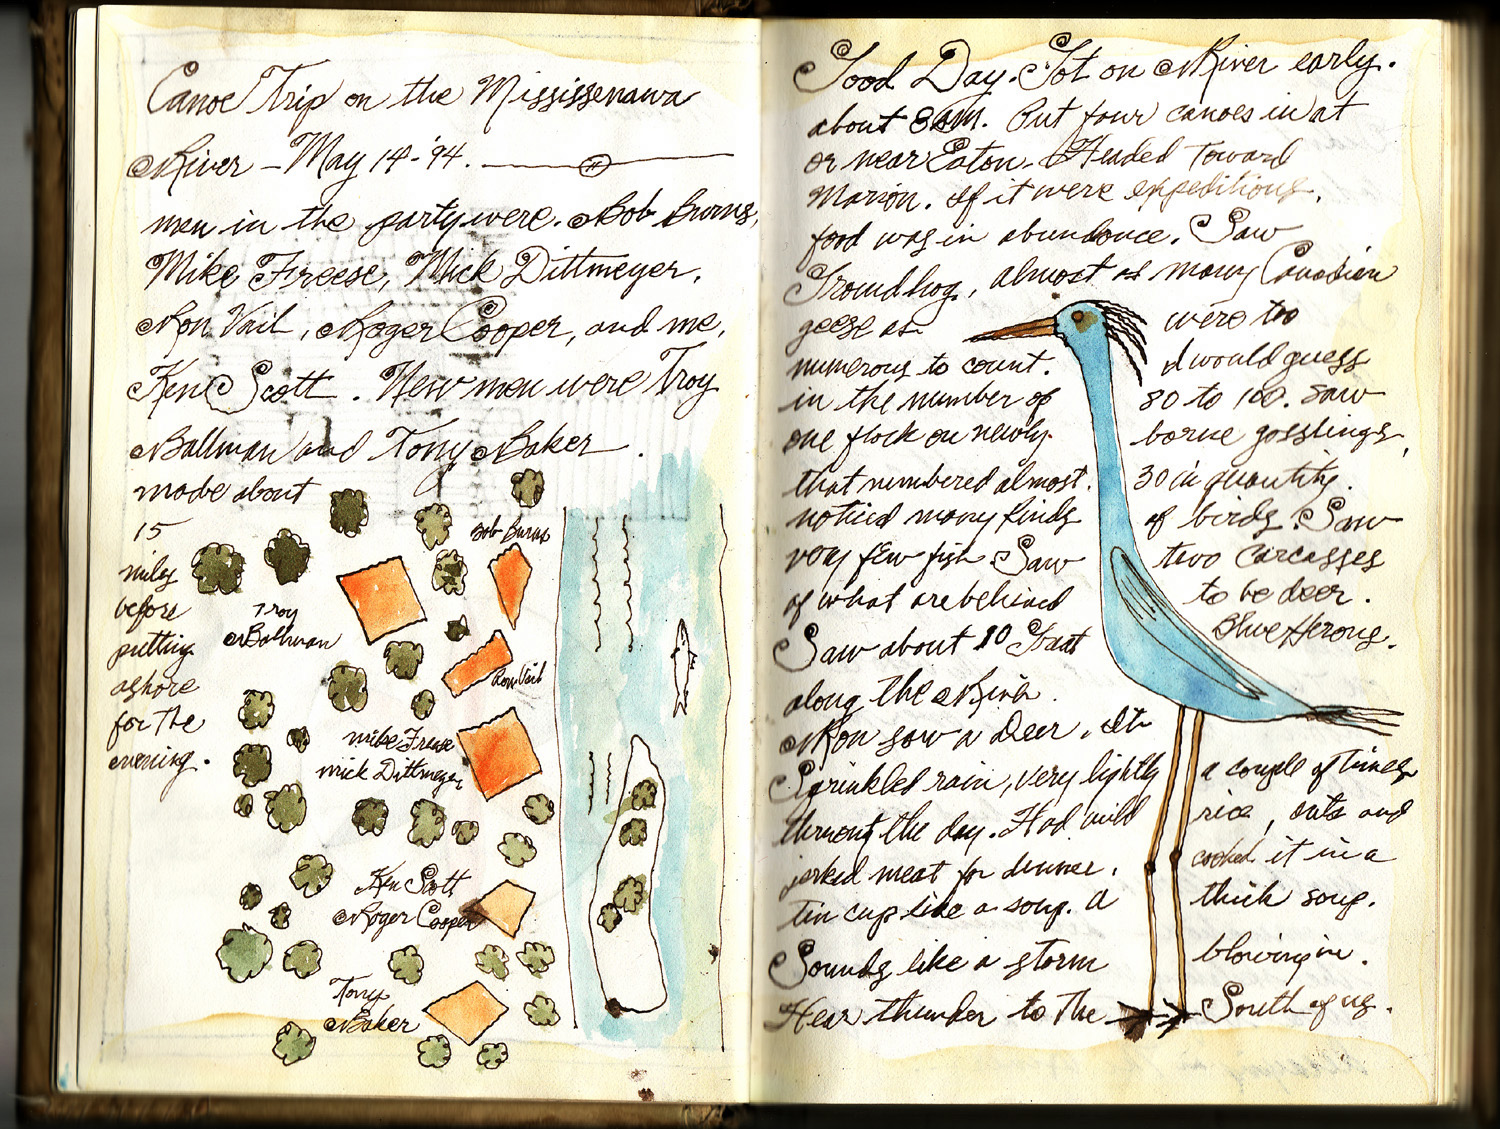 Canoe Trip on the Mississenawa
River - May 14-'94.
men in the party were. Bob Burns,
Mike Freese, Mick Dittmeyer,
Ron Vail, Roger Cooper, and me,
Ken Scott. New men were Troy
Ballman and Tony Baker.
made about
15
miles
before
putting
ashore
for the
evening.
Bob Burns
Troy
Ballman
Ron Vail
Mike Freese
Mick Dittmeyer
Ken Scott
Roger Cooper
Tony
Baker
Good Day. Got on River early.
about 8 AM. Put four canoes in at
or near Eaton. Headed Toward
Marion. If it were expeditions,
food was in abundance. Saw
Groundhog, almost as many Canadian
geese as were too
numerous to count. I would guess
in the number of 80 to 100. Saw
one flock on newly. borne gosslings,
that numbered almost. 30 in quantity.
noticed many kinds of birds. Saw
very few fish. Saw two carcasses
of what are behind to be deer.
Saw about 10 Great Blue Herons.
along the River.
Ron saw a Deer. It
Sprinkled rain, very lightly a couple of times
thruout the day. Had wild rice, oats and
jerked meat for dinner. cooked it in a
tin cup like a soup. A thick soup.
Sounds like a storm blowing in.
Hear thunder to the South of us.